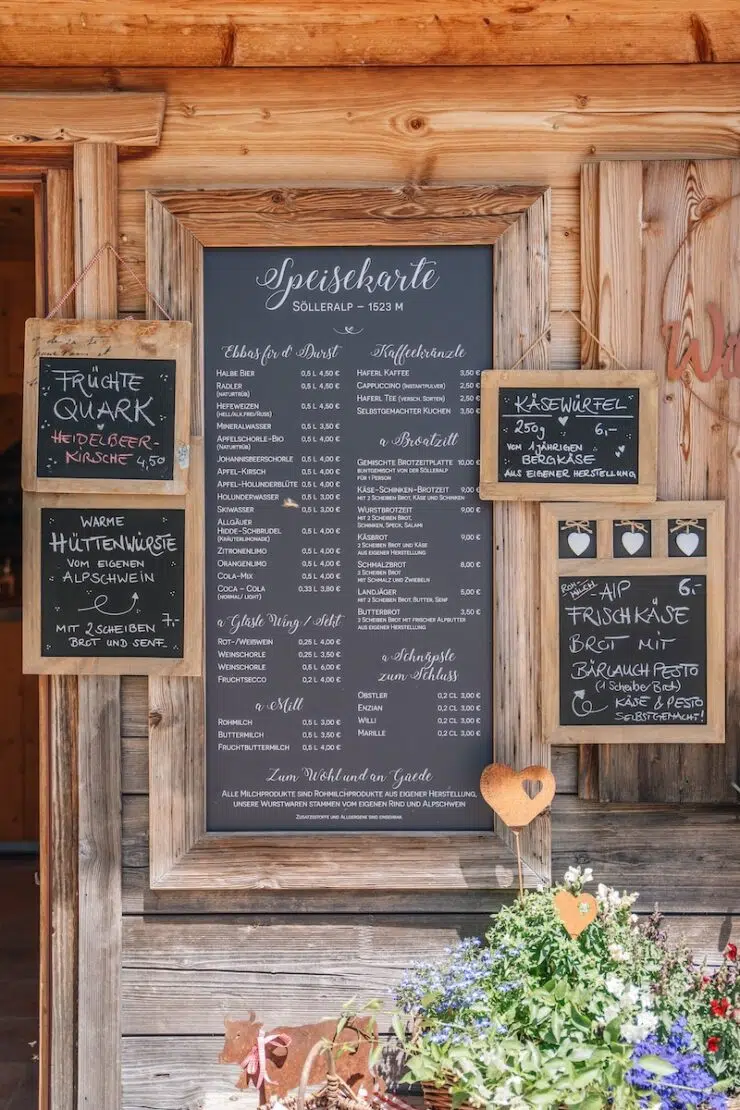 Speisekarte
SÖLLERALP – 1523 M
Ebbas fir d' Durst
HALBE BIER 0,5 L 4,50 €
RADLER 0,5 L 4,50 €
(NATURTRÜB)
HEFEWEIZEN 0,5 L 4,50 €
(HELL/ALK.FREI/RUSS)
MINERALWASSER 0,5 L 3,50 €
APFELSCHORLE-BIO 0,5 L 4,00 €
(NATURTRÜB)
JOHANNISBEERSCHORLE 0,5 L 4,00 €
APFEL-KIRSCH 0,5 L 4,00 €
APFEL-HOLUNDERBLÜTE 0,5 L 4,00 €
HOLUNDERWASSER 0,5 L 3,00 €
SKIWASSER 0,5 L 3,00 €
ALLGÄUER
HIDDE-SCHBRUDEL 0,5 L 4,00 €
(KRÄUTERLIMONADE)
ZITRONENLIMO 0,5 L 4,00 €
ORANGENLIMO 0,5 L 4,00 €
COLA-MIX 0,5 L 4,00 €
COCA – COLA 0,33 L 3,80 €
(NORMAL/ LIGHT)
a Gläsle Wing / Sekt
ROT-/WEIßWEIN 0,25 L 4,00 €
WEINSCHORLE 0,25 L 3,50 €
WEINSCHORLE 0,5 L 6,00 €
FRUCHTSECCO 0,2 L 4,00 €
a Mill
ROHMILCH 0,5 L 3,00 €
BUTTERMILCH 0,5 L 3,50 €
FRUCHTBUTTERMILCH 0,5 L 4,00 €
Kaffeekränzle
HAFERL KAFFEE 3,50 €
CAPPUCCINO (INSTANTPULVER) 2,50
HAFERL TEE (VERSCH. SORTEN) 2,50
SELBSTGEMACHTER KUCHEN 3,50
a Broatzitt
GEMISCHTE BROTZEITPLATTE 10,00 €
BUNTGEMISCHT VON DER SÖLLERALP
FÜR 1 PERSON
KÄSE-SCHINKEN-BROTZEIT 9,00 €
MIT 2 SCHEIBEN BROT, KÄSE UND SCHINKEN
WURSTBROTZEIT 9,00 €
MIT 2 SCHEIBEN BROT,
SCHINKEN, SPECK, SALAMI
KÄSBROT 9,00 €
2 SCHEIBEN BROT UND KÄSE
AUS EIGENER HERSTELLUNG
SCHMALZBROT 8,00 €
2 SCHEIBEN BROT
MIT SCHMALZ UND ZWIEBELN
LANDJÄGER 5,00 €
MIT 2 SCHEIBEN BROT, BUTTER, SENF
BUTTERBROT 3,50 €
2 SCHEIBEN BROT MIT FRISCHER ALPBUTTER
AUS EIGENER HERSTELLUNG
a Schnäpsle
zum Schluss
OBSTLER 0,2 CL 3,00 €
ENZIAN 0,2 CL 3,00 €
WILLI 0,2 CL 3,00 €
MARILLE 0,2 CL 3,00 €
Zum Wohl und an Guede
ALLE MILCHPRODUKTE SIND ROHMILCHPRODUKTE AUS EIGENER HERSTELLUNG,
UNSERE WURSTWAREN STAMMEN VOM EIGENEN RIND UND ALPSCHWEIN
ZUSATZSTOFFE UND ALLERGENE SIND EINSEHBAR.
FRÜCHTE
QUARK
HEIDELBEER-
KIRSCHE 4,50
WARME
HÜTTENWÜRSTE
VOM EIGENEN
ALPSCHWEIN
7,-
MIT 2 SCHEIBEN
BROT UND SENF
KÄSEWÜRFEL
250g 6,-
VOM 1 JÄHRIGEN
BERGKÄSE
AUS EIGENER HERSTELLUNG
ROHMILCH-ALP 6,-
FRISCHKÄSE
BROT MIT
BÄRLAUCHPESTO
(1 Scheibe Brot)
KÄSE & PESTO
SELBSTGEMACHT!